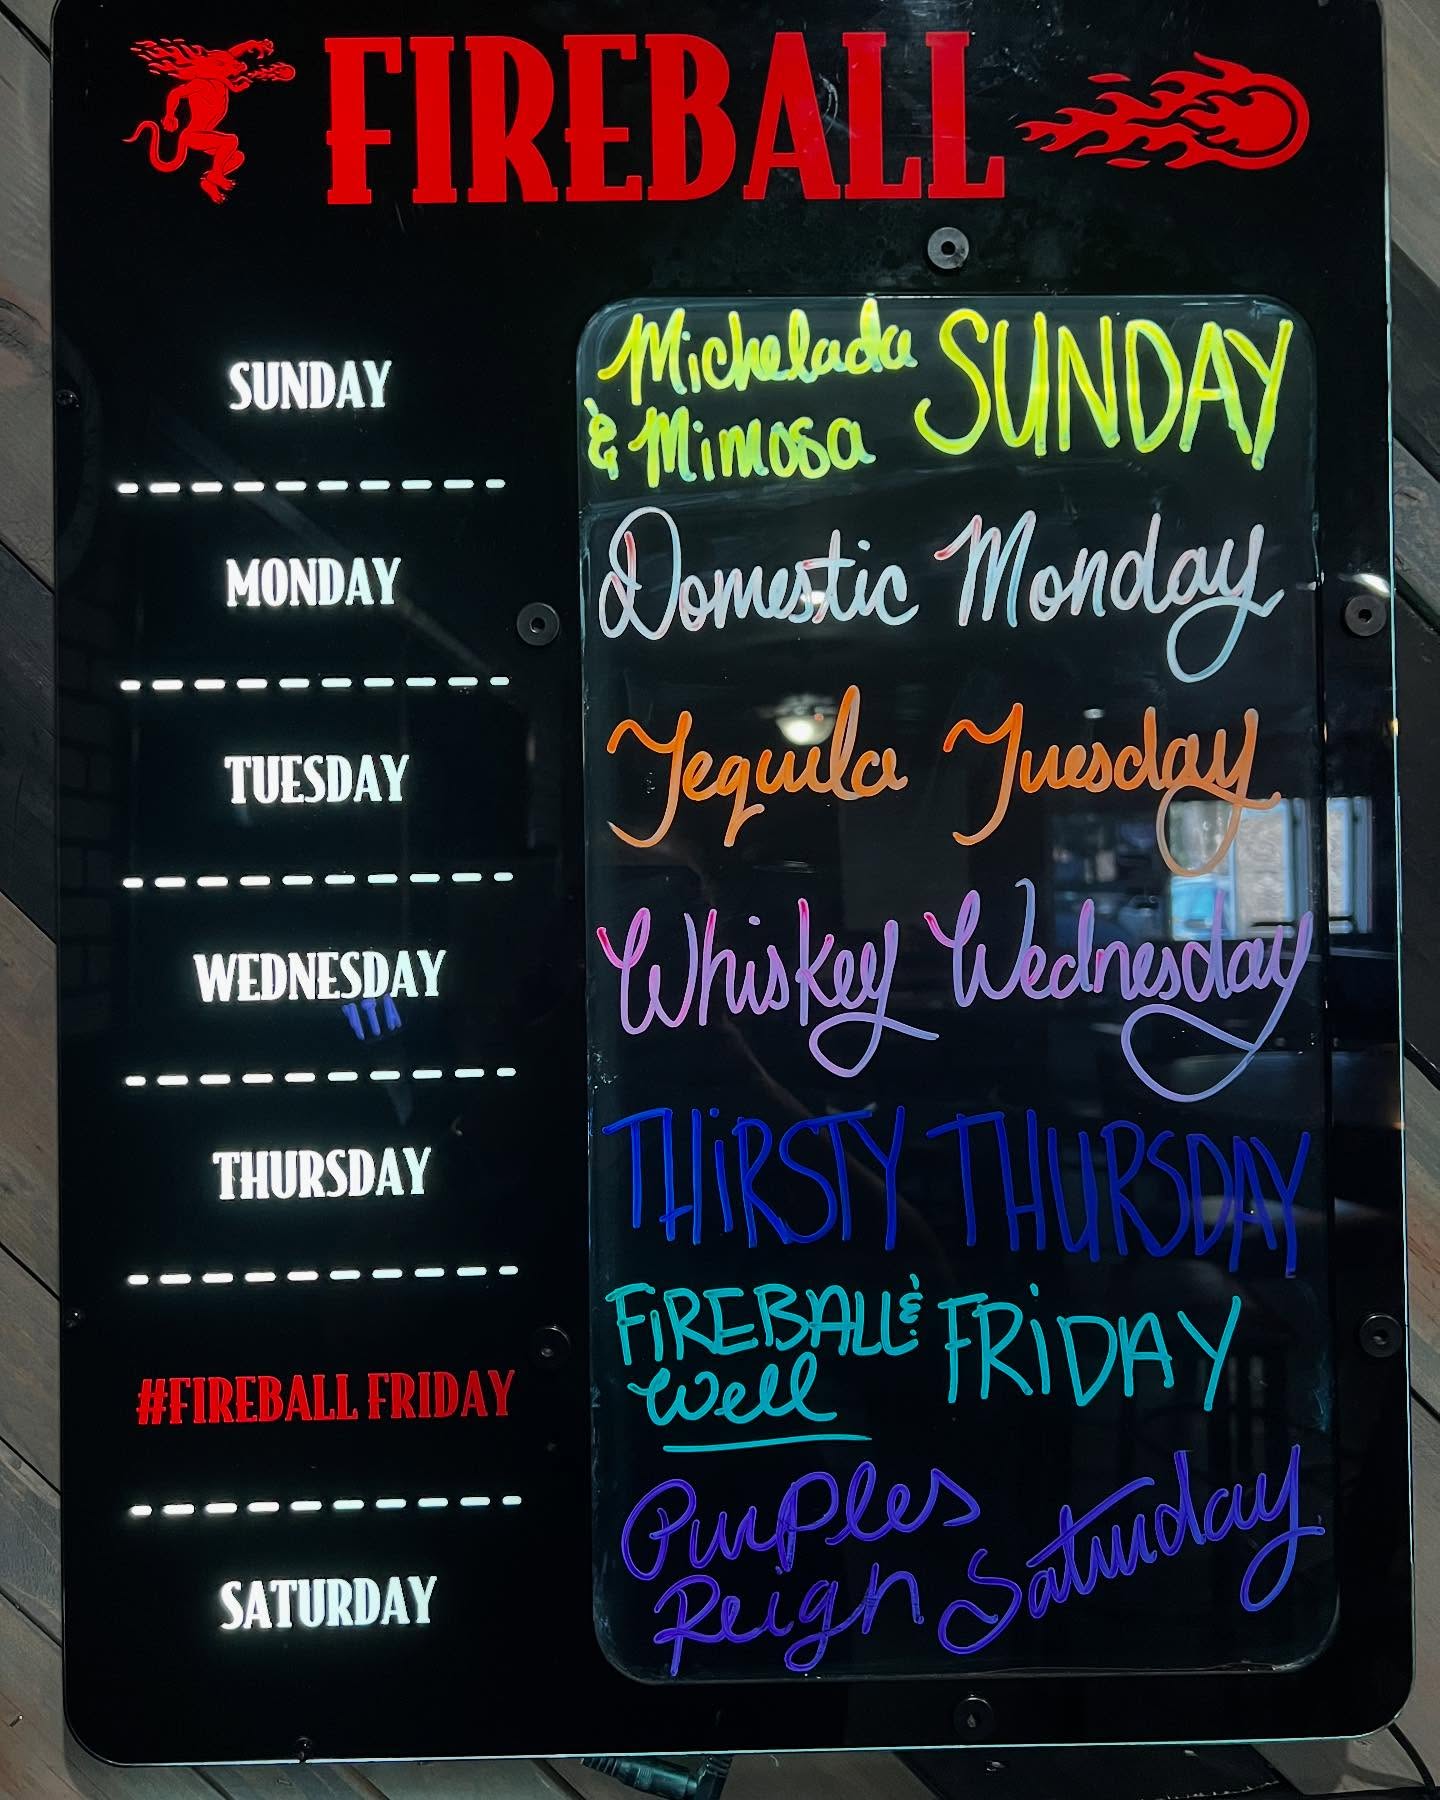 FIREBALL
SUNDAY
Michelada SUNDAY
& Mimosa
MONDAY
Domestic Monday
TUESDAY
Tequila Tuesday
WEDNESDAY
Whiskey Wednesday
THURSDAY
THiRSTY THURSDAY
#FIREBALL FRIDAY
FiREBALL & FRiDAY
Well
SATURDAY
Purples
Reign Saturday